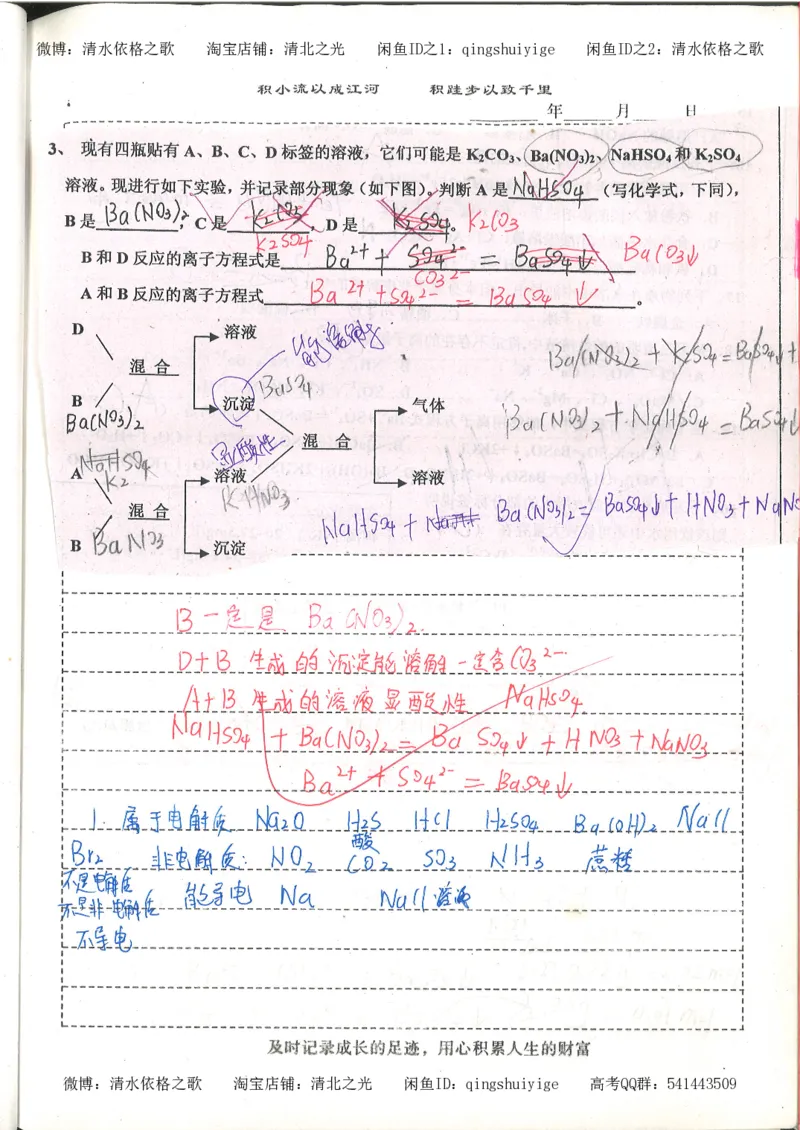 微博：清水依格之歌 淘宝店铺：清北之光 闲鱼ID之1：qingshuiyige 闲鱼ID之2：清水依格之歌
积小流以成江河 积跬步以致千里
年 月 日
3、 现有四瓶贴有 A、B、C、D 标签的溶液，它们可能是 K₂CO₃、Ba(NO₃)₂、NaHSO₄ 和 K₂SO₄
溶液。现进行如下实验，并记录部分现象（如下图）。判断 A 是 NaHSO₄ （写化学式，下同），
B 是 Ba(NO₃)₂ ，C 是 K₂CO₃ ，D 是 K₂SO₄ 。K₂CO₃
K₂SO₄
B 和 D 反应的离子方程式是 Ba²⁺ + SO₄²⁻ = BaSO₄↓ BaCO₃↓
CO₃²⁻
A 和 B 反应的离子方程式 Ba²⁺ + SO₄²⁻ = BaSO₄↓ 。
D 溶液
混 合
Ba(NO₃)₂ + K₂SO₄ = BaSO₄↓ +
B 沉淀 BaSO₄ 气体
Ba(NO₃)₂
Ba(NO₃)₂ + NaHSO₄ = BaSO₄↓
混 合
显酸性
NaHSO₄
A K₂ 溶液 溶液
HNO₃
混 合
NaHSO₄ + Ba(NO₃)₂ = BaSO₄↓ + HNO₃ + NaNO
B BaNO₃ 沉淀
B一定是 Ba(NO₃)₂.
D+B 生成的沉淀能溶解一定含CO₃²⁻
A+B 生成的溶液显酸性 NaHSO₄
NaHSO₄ + Ba(NO₃)₂ = BaSO₄↓ + HNO₃ + NaNO₃
Ba²⁺ + SO₄²⁻ = BaSO₄↓
1. 属于电解质 Na₂O H₂S HCl H₂SO₄ Ba(OH)₂ NaCl
酸
Br₂ 非电解质: NO₂ CO₂ SO₃ NH₃ 蔗糖
不是电解质
不是非电解质 能导电 Na NaCl溶液
不导电
及时记录成长的足迹，用心积累人生的财富
微博：清水依格之歌 淘宝店铺：清北之光 闲鱼ID：qingshuiyige 高考QQ群：541443509